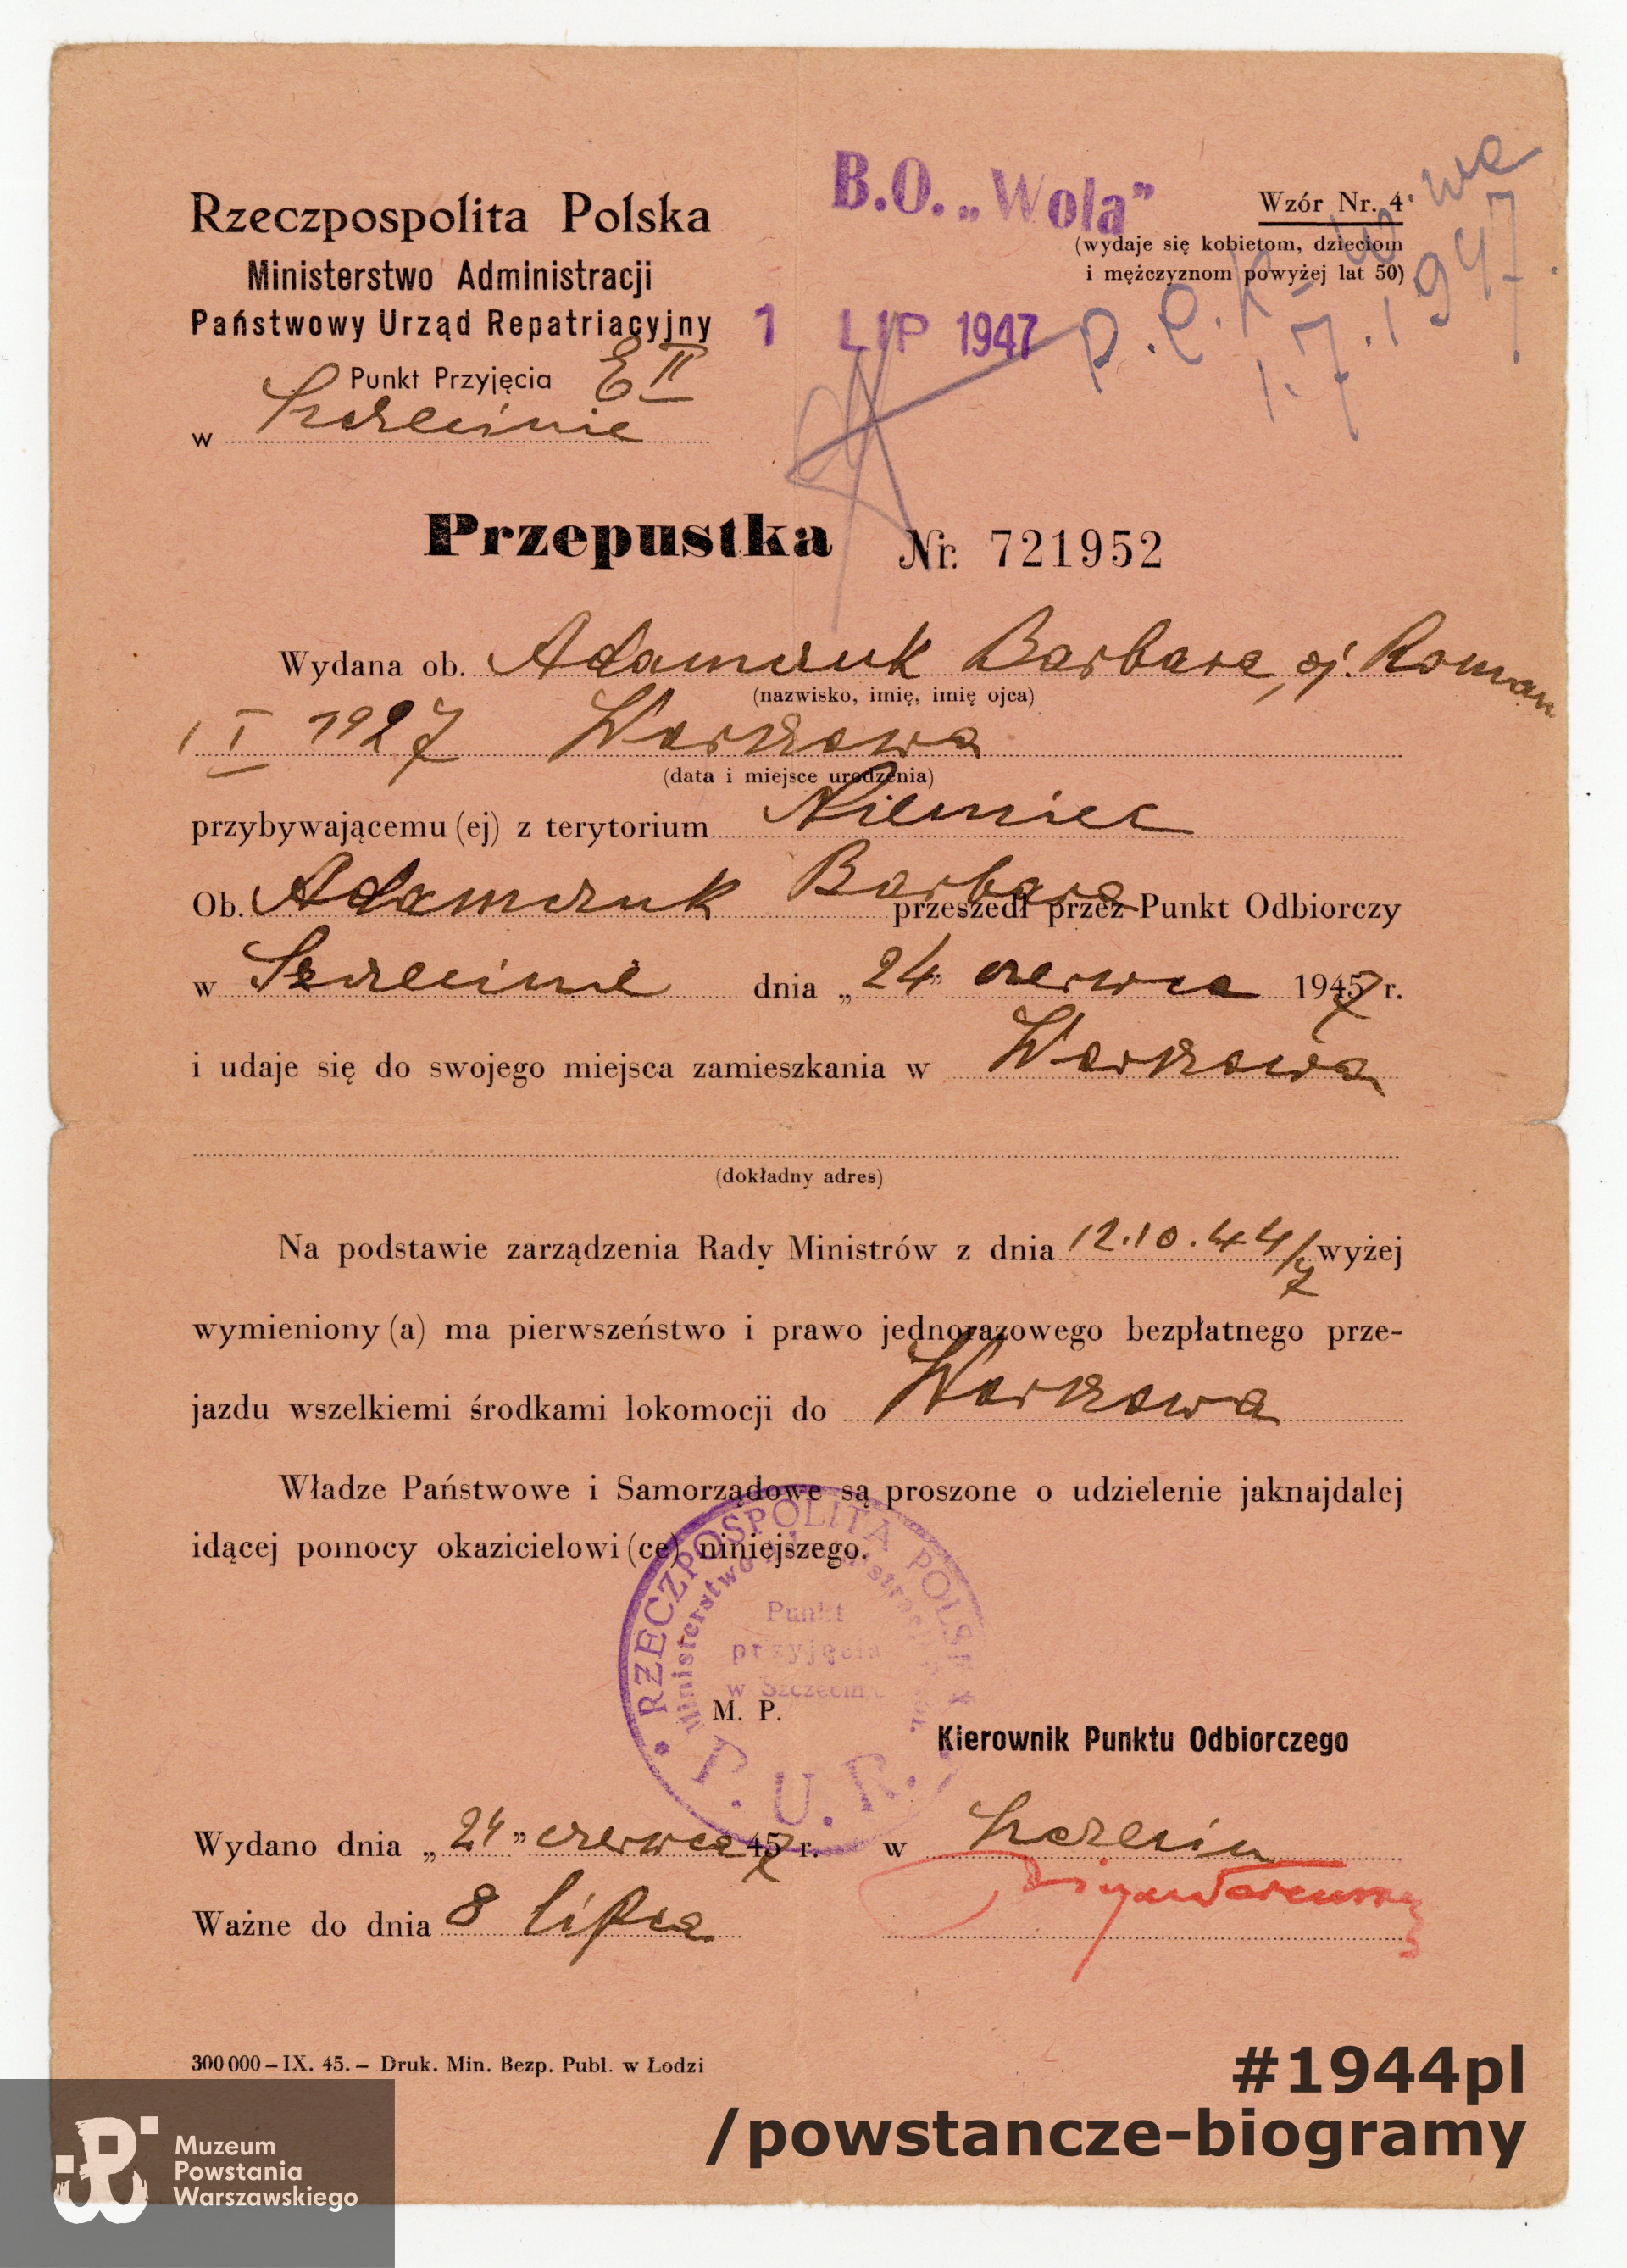 B.O. „Wola”
Rzeczpospolita Polska
Wzór Nr. 4
(wydaje się kobietom, dzieciom
i mężczyznom powyżej lat 50)
Ministerstwo Administracji
Państwowy Urząd Repatriacyjny
1 LIP 1947
1.7.1947.
Punkt Przyjęcia E II
w Szczecinie
Przepustka Nr. 721952
Wydana ob. Adamczuk Barbara, oj. Roman
(nazwisko, imię, imię ojca)
1 I 1927 Warszawa
(data i miejsce urodzenia)
przybywającemu (ej) z terytorium Niemiec
Ob. Adamczuk Barbara przeszedł przez Punkt Odbiorczy
w Szczecinie dnia „24” czerwca 1947 r.
i udaje się do swojego miejsca zamieszkania w Warszawa
(dokładny adres)
Na podstawie zarządzenia Rady Ministrów z dnia 12.10.44/7 wyżej
wymieniony (a) ma pierwszeństwo i prawo jednorazowego bezpłatnego prze-
jazdu wszelkiemi środkami lokomocji do Warszawa
Władze Państwowe i Samorządowe są proszone o udzielenie jaknajdalej
idącej pomocy okazicielowi (ce) niniejszego.
RZECZPOSPOLITA POLSKA
Ministerstwo
Punkt
przyjęcia
w Szczecinie
P.U.R.
M. P.
Kierownik Punktu Odbiorczego
Wydano dnia „24” czerwca 47 r. w Szczecin
Ważne do dnia 8 lipca
300 000 – IX. 45. – Druk. Min. Bezp. Publ. w Łodzi
#1944pl
/powstancze-biogramy
Muzeum
Powstania
Warszawskiego